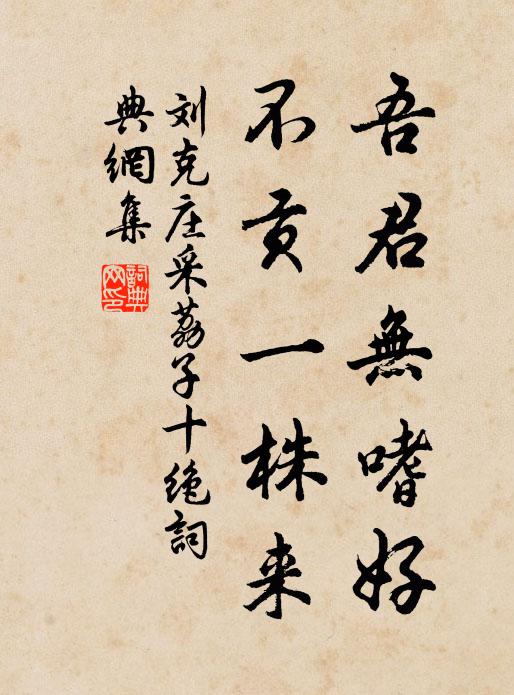 吾君無嗜好
不贡一株来
刘克庄采荔子十绝詞
典網集
詞典网印